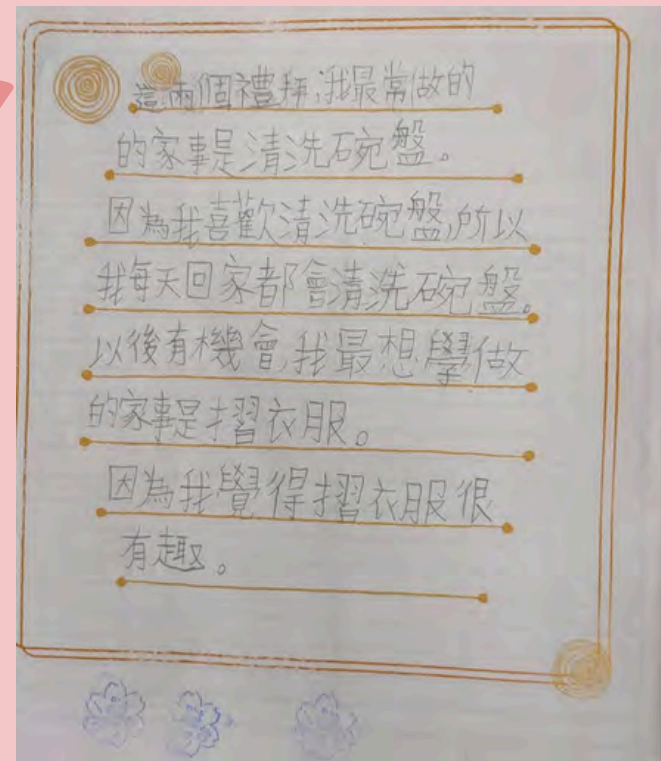 這兩個禮拜,我最常做的
的家事是清洗碗盤。
因為我喜歡清洗碗盤,所以
我每天回家都會清洗碗盤。
以後有機會,我最想學做
的家事是摺衣服。
因為我覺得摺衣服很
有趣。